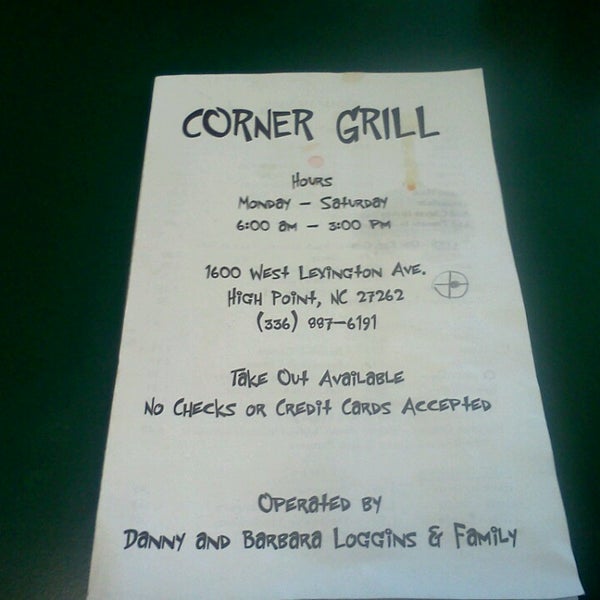 CORNER GRILL
HOURS
MONDAY – SATURDAY
6:00 AM – 3:00 PM
1600 WEST LEXINGTON AVE.
HIGH POINT, NC 27262
(336) 887–6191
TAKE OUT AVAILABLE
NO CHECKS OR CREDIT CARDS ACCEPTED
OPERATED BY
DANNY AND BARBARA LOGGINS & FAMILY